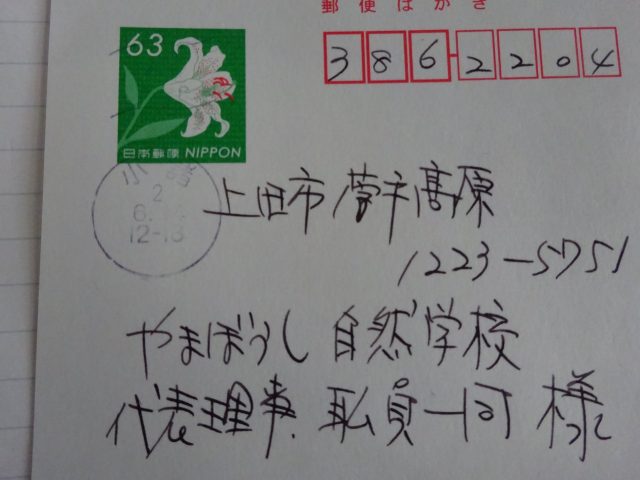 郵便はがき
3 8 6-2 2 0 4
63
日本郵便 NIPPON
小
2
12-18
上田市 菅平高原
1223-5751
やまぼうし 自然学校
代表理事. 耺員一同 様